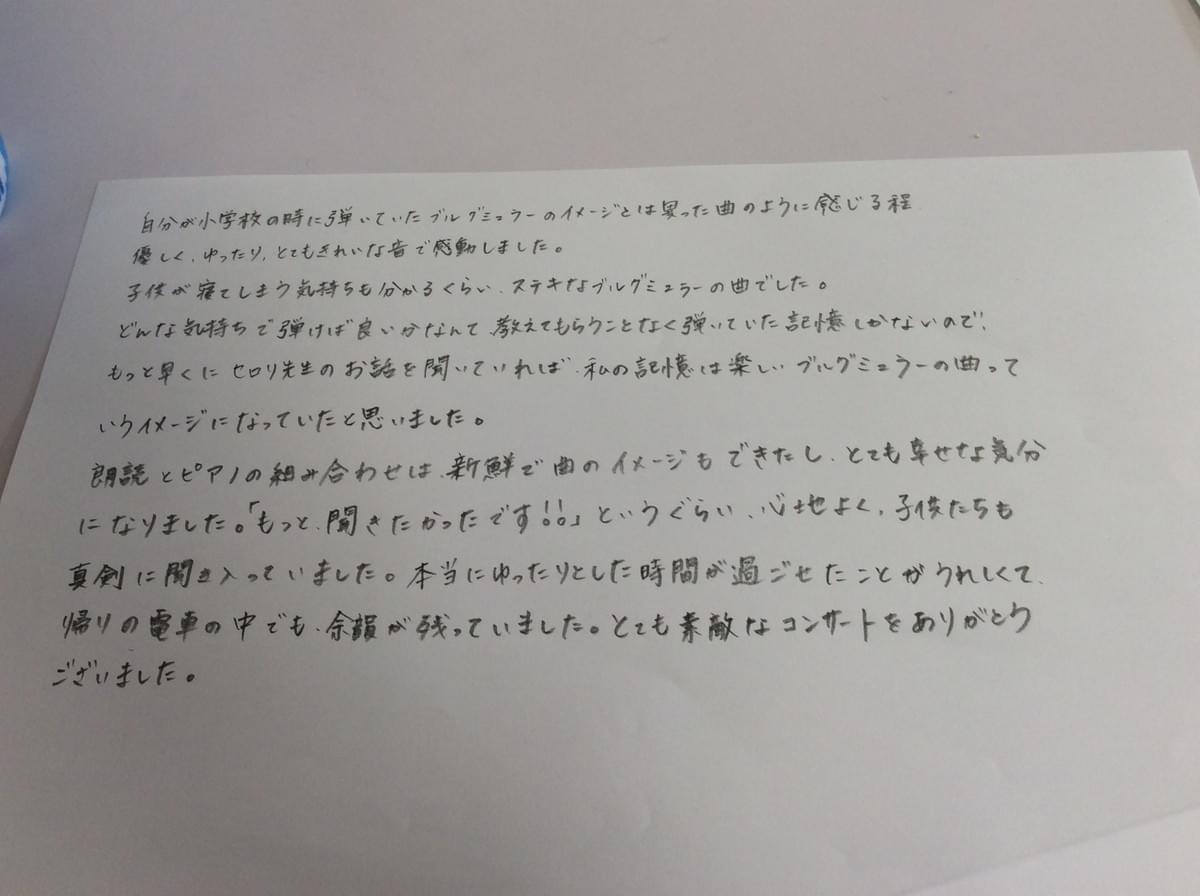 自分が小学校の時に弾いていたブルグミュラーのイメージとは異った曲のように感じる程
優しく、ゆったり、とてもきれいな音で感動しました。
子供が寝てしまう気持ちも分かるくらい、ステキなブルグミュラーの曲でした。
どんな気持ちで弾けば良いかなんて、教えてもらうことなく弾いていた記憶しかないので、
もっと早くにセロリ先生のお話を聞いていれば、私の記憶は楽しいブルグミュラーの曲って
いうイメージになっていたと思いました。
朗読とピアノの組み合わせは、新鮮で曲のイメージもできたし、とても幸せな気分
になりました。「もっと、聞きたかったです!!。」というぐらい、心地よく、子供たちも
真剣に聞き入っていました。本当にゆったりとした時間が過ごせたことがうれしくて、
帰りの電車の中でも、余韻が残っていました。とても素敵なコンサートをありがとう
ございました。